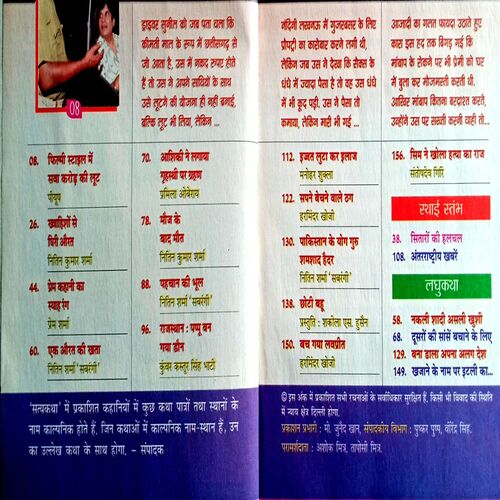 ड्राइवर सुनील को जब पता चला कि
कीमती माल के रूप में छत्तीसगढ़ से
जो आता है, उस में नकद रुपए होते
हैं तो उस ने अपने साथियों के साथ
उसे लूटने की योजना ही नहीं बनाई,
बल्कि लूट भी लिया, लेकिन ...
08
08. फिल्मी स्टाइल में
सवा करोड़ की लूट
26. ख्वाहिशों से
घिरी औरत
नितिन कुमार शर्मा
44. प्रेम कहानी का
स्याह रंग
प्रेम शर्मा
60. एक औरत की खता
नितिन शर्मा 'सबरंगी'
70. आशिकी ने लगाया
गृहस्थी पर ग्रहण
प्रमिला ओबेराय
78. मौज के
बाद मौत
नितिन कुमार शर्मा
88. पहचान की भूल
नितिन शर्मा 'सबरंगी'
96. राजस्थान : पप्पू बन
गया डौन
कुंवर कस्तूर सिंह भाटी
'सत्यकथा' में प्रकाशित कहानियों में कुछ कथा पात्रों तथा स्थानों के
नाम काल्पनिक होते हैं. जिन कथाओं में काल्पनिक नाम-स्थान हैं, उन
का उल्लेख कथा के साथ होगा. – संपादक
नंदिनी लखनऊ में गुजरबसर के लिए
प्रौपर्टी का कारोबार करने लगी थी,
लेकिन जब उस ने देखा कि सैक्स के
धंधे में ज्यादा पैसा है तो वह उस धंधे
में भी कूद पड़ी. उस ने पैसा तो
कमाया, लेकिन मारी भी गई ...
आजादी का गलत फायदा उठाते हुए
कारा इस हद तक बिगड़ गई कि
मांबाप के रोकने पर भी प्रेमी को घर
में बुला कर मौजमस्ती करती थी.
आखिर मांबाप कितना बरदाश्त करते,
उन्होंने उस पर सख्ती करनी चाही तो...
112. इज्जत लुटा कर इलाज
मनोहर शुक्ला
122. सपने बेचने वाले ठग
हरमिंदर खोजी
130. पाकिस्तान के योग गुरु
शमशाद हैदर
नितिन शर्मा 'सबरंगी'
138. छोटी बहू
प्रस्तुति : शकीला एस. हुसैन
150. बच गया लवप्रीत
हरमिंदर खोजी
156. सिम ने खोला हत्या का राज
संतोषदेव गिरि
स्थाई स्तंभ
38. सितारों की हलचल
108. अंतरराष्ट्रीय खबरें
लघुकथा
58. नकली शादी असली खुशी
68. दूसरों की सांसें बचाने के लिए
129. बना डाला अपना अलग देश
149. खजाने के नाम पर इटली का...
© इस अंक में प्रकाशित सभी रचनाओं के सर्वाधिकार सुरक्षित हैं. किसी भी विवाद की स्थिति
में न्याय क्षेत्र दिल्ली होगा.
प्रकाशन प्रभारी : मो. जुनैद खान, संपादकीय विभाग : पुष्कर पुष्प, वीरेंद्र सिंह.
परामर्शदाता : अशोक मित्र, तापोसी मित्र.